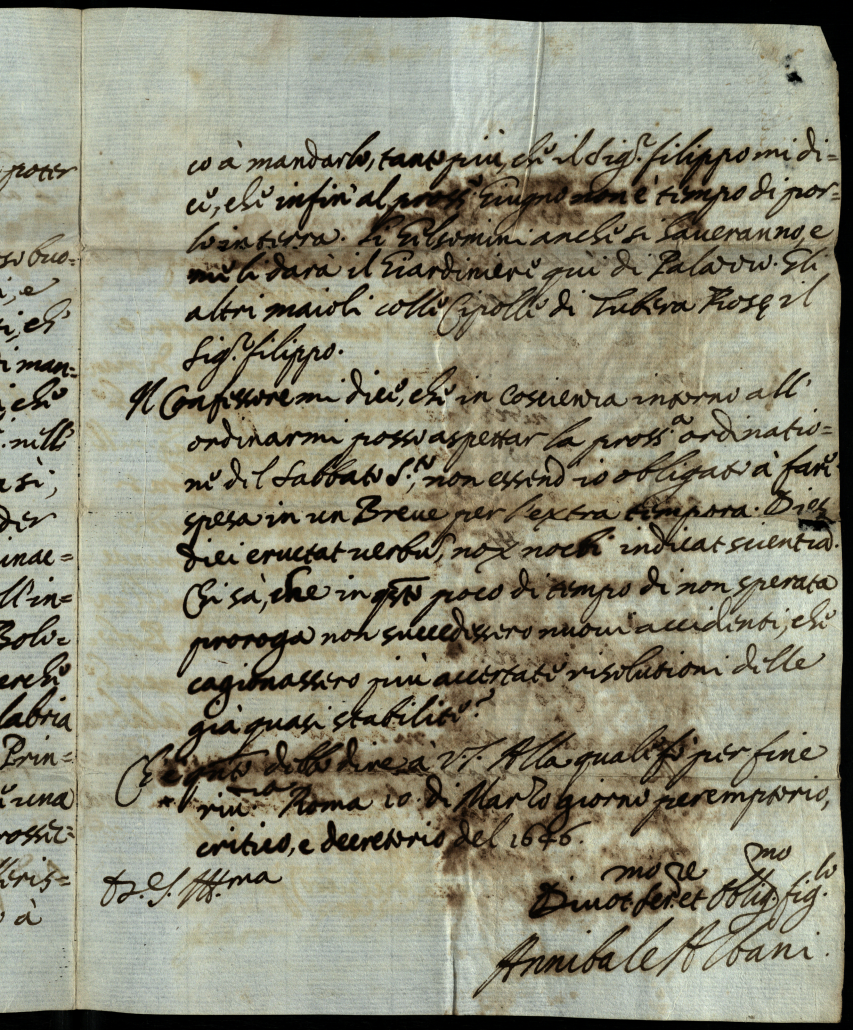 poter
so buo=
, e
i, ch'
ti man=
, che
. nell'
a sì,
der
inac=
ll'in=
Bolo=
erche
labria
Prin=
è una
rossec=
lleris=
à
co à mandarlo, tanto più, che il Sig.r filippo mi di=
ce, che infin' al pross.o Giugno non è tempo di por=
lo in terra. Li Gelsomini anche si haveranno, e
me li darà il Giardiniere quì di Palazzo. Gli
altri maioli colle Cipolle di Tubera Rosę il
Sig.r filippo.
Il Confessore mi dice, che in coscienza intorno all'
ordinarmi posso aspettar la pross.a ordinatio=
ne del Sabbato S.to, non essend' io obligato à fare
spesa in un Breve per l'extra tempora. Dies
diei eructat verbũ, nox nocti indicat scientiã.
Chi sà, che in q̃sto poco di tempo di non sperata
proroga non succedessero nuovi accidenti, che
cagionassero più accertate risolutioni delle
già quasi stabilite?
Che è q.to debbo dire à V.S. Alla quale fò per fine
riu.za Roma 10. di Marzo giorno peremptorio,
critico, e decretorio del 1646.
Di V.S. Ill.ma
Divot.mo ser.re et Oblig.mo fig.lo
Annibale Albani.